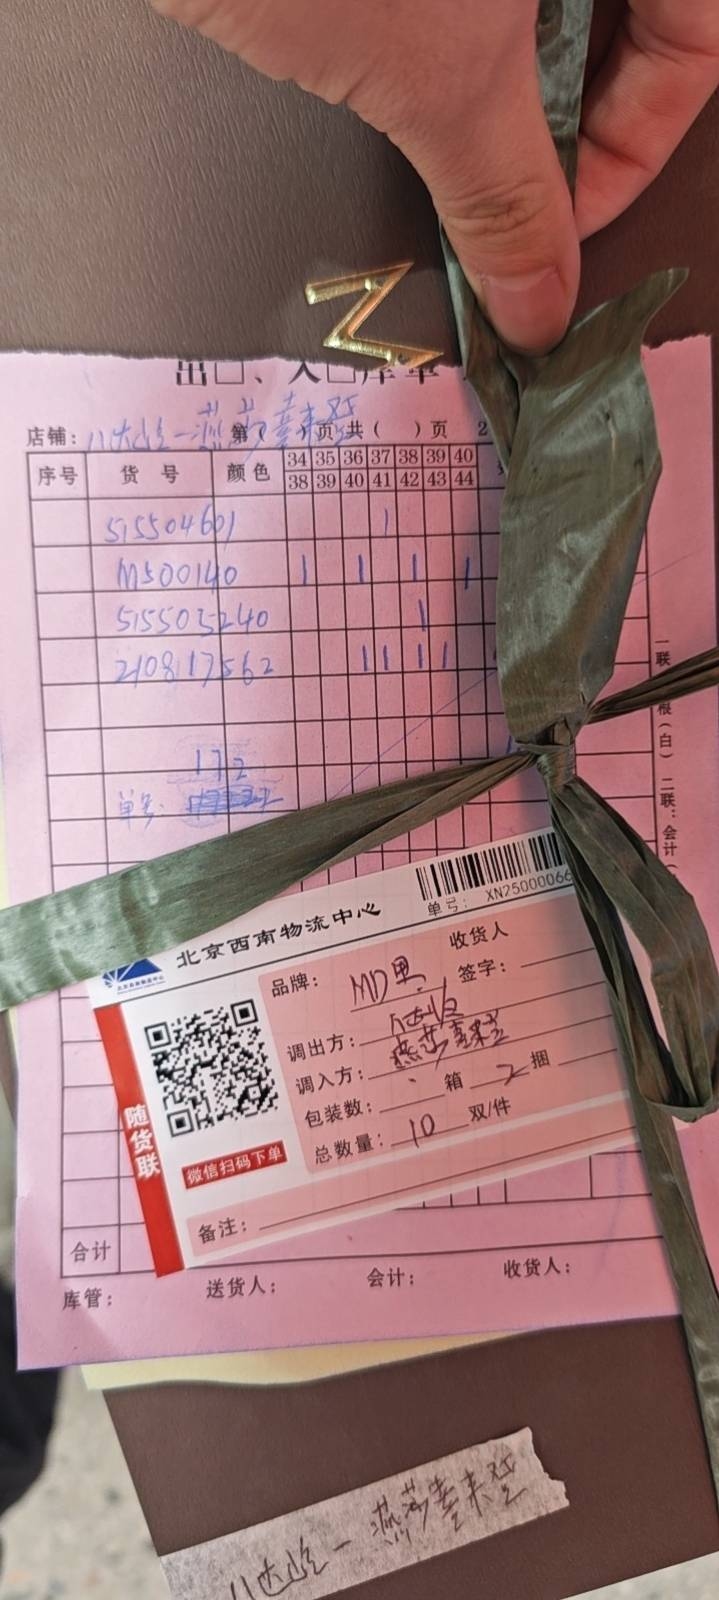 出□、入□库单
店铺: 八达岭一燕莎奥莱 第( )页 共( )页 2
序号 货号 颜色 34 35 36 37 38 39 40
38 39 40 41 42 43 44
515504601 1
M500140 1 1 1 1
515505240 1
210817562 1 1 1 1
172
单号:
一联: 根(白) 二联: 会计(
北京西南物流中心
单号: XN25000066
品牌: MD男 收货人
签字:
调出方: 八达岭
调入方: 燕莎奥莱
包装数: 箱 2 捆
总数量: 10 双/件
随货联
微信扫码下单
备注:
合计
库管: 送货人: 会计: 收货人:
八达岭一燕莎奥莱